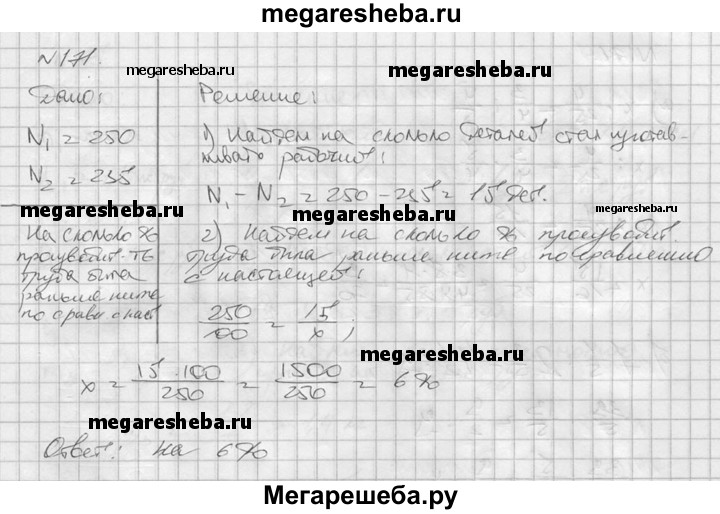 megaresheba.ru
N171.
megaresheba.ru
megaresheba.ru
Дано:
Решение:
N₁ = 250
1) Найдем на сколько деталей стал изготав-
ливать рабочий:
N₂ = 235
N₁ - N₂ = 250 - 235 = 15 дет.
megaresheba.ru
megaresheba.ru
На сколько %
производит. ть
труда была
раньше ниже
по сравн с наст
2) Найдем на сколько % производит.
труда была раньше ниже по сравнению
с настоящей:
250/100 = 15/x ;
megaresheba.ru
x = 15 · 100/250 = 1500/250 = 6%
megaresheba.ru
Ответ: на 6%
Мегарешеба.ру